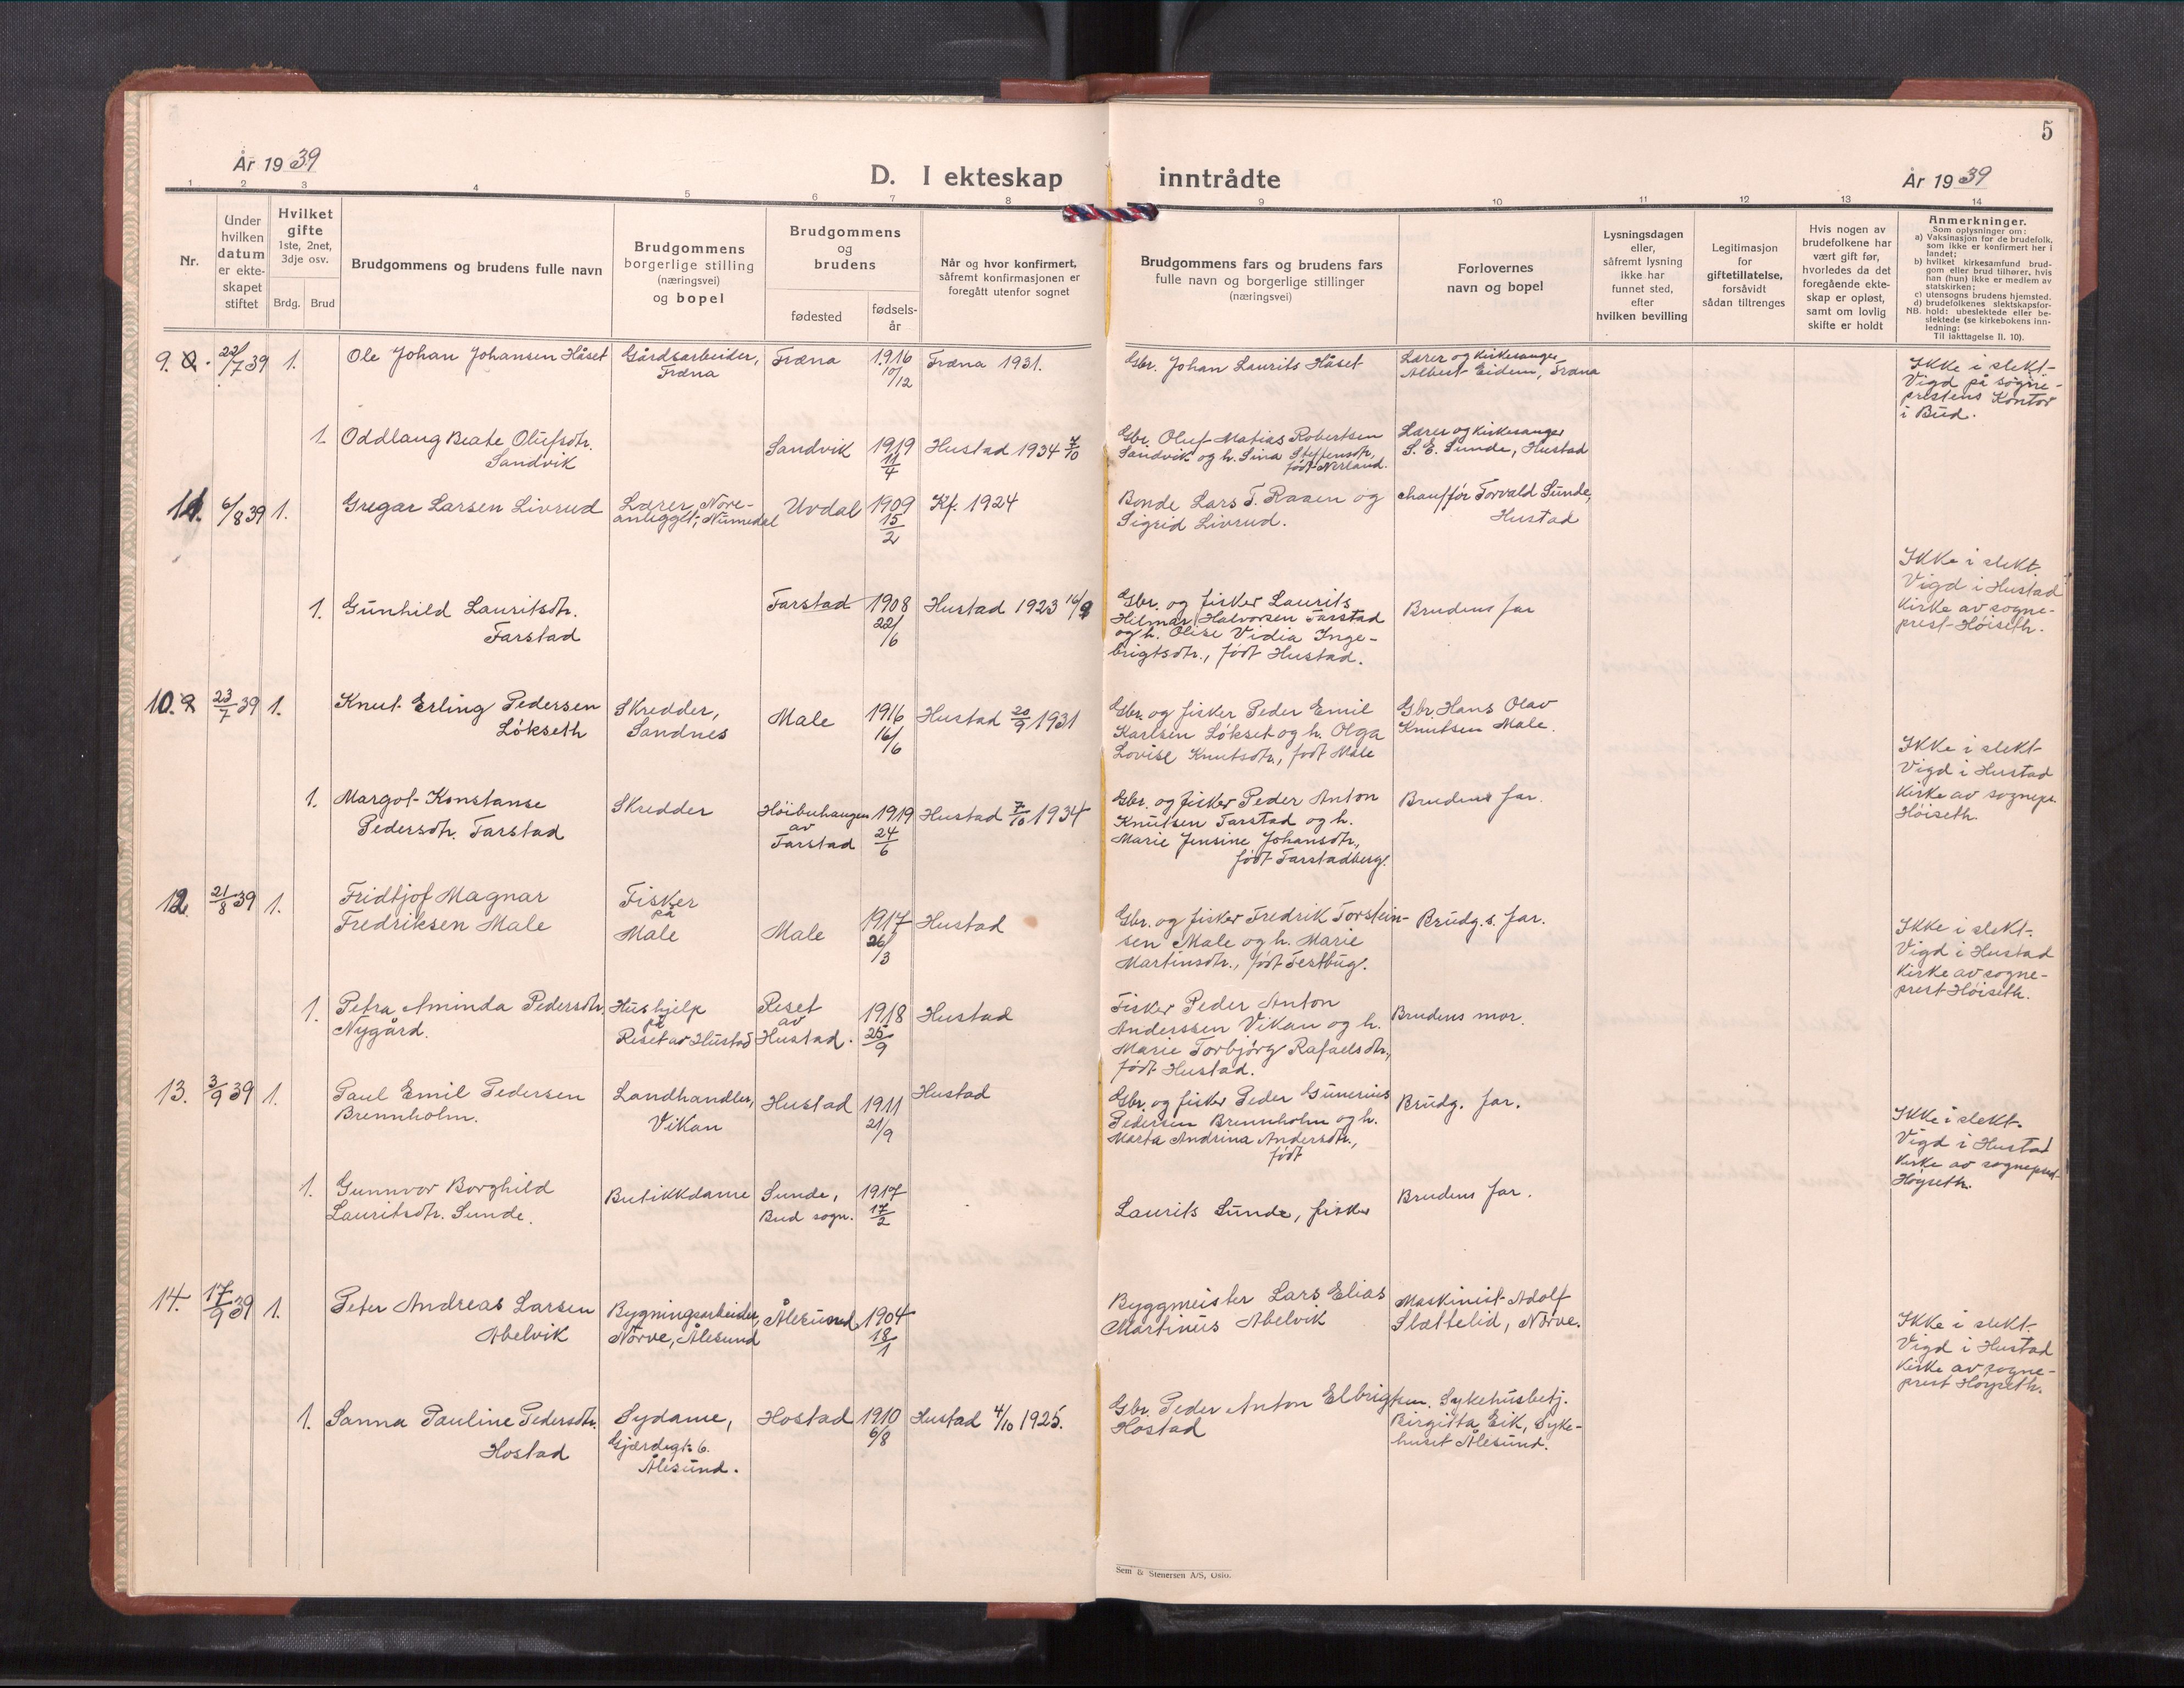 5
År 1939
D. I ekteskap inntrådte
År 1939
1 2 3 4 5 6 7 8 9 10 11 12 13 14
Nr.
Under
hvilken
datum
er ekte-
skapet
stiftet
Hvilket
gifte
1ste, 2net,
3dje osv.
Brdg. Brud
Brudgommens og brudens fulle navn
Brudgommens
borgerlige stilling
(næringsvei)
og bopel
Brudgommens
og
brudens
fødested
fødsels-
år
Når og hvor konfirmert,
såfremt konfirmasjonen er
foregått utenfor sognet
Brudgommens fars og brudens fars
fulle navn og borgerlige stillinger
(næringsvei)
Forlovernes
navn og bopel
Lysningsdagen
eller,
såfremt lysning
ikke har
funnet sted,
efter
hvilken bevilling
Legitimasjon
for
giftetillatelse,
forsåvidt
sådan tiltrenges
Hvis nogen av
brudefolkene har
vært gift før,
hvorledes da det
foregående ekte-
skap er opløst,
samt om lovlig
skifte er holdt
Anmerkninger.
Som oplysninger om:
a) Vaksinasjon for de brudefolk,
som ikke er konfirmert her i
landet;
b) hvilket kirkesamfund brud-
gom eller brud tilhører, hvis
han (hun) ikke er medlem av
statskirken;
c) utensogns brudens hjemsted.
d) brudefolkenes slektskapsfor-
NB. hold: ubeslektede eller be-
slektede (se kirkebokens inn-
ledning:
Til iakttagelse II. 10).
9. 22/7 39 1. Ole Johan Johansen Håset
Gårdsarbeider,
Fræna
Fræna
1916
10/12
Fræna 1931.
Gbr. Johan Laurits Håset
Lærer og kirkesanger
Albert Eidem, Fræna
Ikke i slekt
Vigd på sogne-
prestens Kontor
i Bud.
1. Oddlaug Beate Olufsdtr.
Sandvik
Sandvik
1919
11/4
Hustad 1934 7/10
Gbr. Oluf Matias Robertsen
Sandvik og h. Sina Steffensdtr,
født Nerland.
Lærer og kirkesanger
S. E. Sunde, Hustad
11. 6/8 39 1. Gregar Larsen Livrud
Lærer, Nore-
anlegget, Numedal
Uvdal
1909
15/2
Kf. 1924
Bonde Lars T. Raaen og
Sigrid Livrud.
chauffør Torvald Sunde,
Hustad
Ikke i slekt
Vigd i Hustad
Kirke av sogne-
prest Høiseth.
1. Gunhild Lauritsdtr.
Farstad
Farstad
1908
22/6
Hustad 1923 16/9
Gbr. og fisker Laurits
Hilmar Halvorsen Farstad
og h. Olise Vidia Inge-
brigtsdtr., født Hustad.
Brudens far
10. 23/7 39 1. Knut Erling Pedersen
Løkseth
Skredder,
Sandnes
Male
1916
16/6
Hustad 20/9 1931
Gbr. og fisker Peder Emil
Karlsen Løkset og h. Olga
Lovise Knutsdtr., født Male
Gbr. Hans Olav
Knutsen Male.
Ikke i slekt
Vigd i Hustad
Kirke av sognepr.
Høiseth.
1. Margot Konstanse
Pedersdtr. Farstad
Skredder
Høibuhaugen
av
Farstad
1919
24/6
Hustad 7/10 1934
Gbr. og fisker Peder Anton
Knutsen Farstad og h.
Marie Jensine Johansdtr.,
født Farstadberg.
Brudens far.
12. 21/8 39 1. Fridtjof Magnar
Fredriksen Male
Fisker
på
Male
Male
1917
26/3
Hustad
Gbr. og fisker Fredrik Torstein-
sen Male og h. Marie
Martinsdtr., født
Brudg. s. far.
Ikke i slekt.
Vigd i Hustad
Kirke av sogne-
prest Høiseth.
1. Petra Aminda Pedersdtr.
Nygård.
Hushjelp
på
Reset av Hustad
Reset
av
Hustad.
1918
25/9
Hustad
Fisker Peder Anton
Anderssen Vikan og h.
Marie Torbjørg Rafaelsdtr,
født Hustad.
Brudens mor.
13. 3/9 39 1. Paul Emil Pedersen
Brennholm.
Landhandler,
Vikan
Hustad
1911
21/9
Hustad
Gbr. og fisker Peder Gunerius
Pedersen Brennholm og h.
Marta Andrina Andersdtr.,
født
Brudg. far.
Ikke i slekt.
Vigd i Hustad
Kirke av sogneprest
Høyseth.
1. Gunnvor Borghild
Lauritsdtr. Sunde.
Butikkdame
Sunde,
Bud sogn.
1917
17/2
Laurits Sunde, fisker
Brudens far.
14. 17/9 39 1. Peter Andreas Larsen
Abelvik
Bygningsarbeider,
Nørve, Ålesund
Ålesund
1904
18/1
Byggmeister Lars Elias
Martinus Abelvik
Maskinist Adolf
Slettelid, Nørve.
Ikke i slekt.
Vigd i Hustad
Kirke av sogne-
prest Høyseth.
1. Sanna Pauline Pedersdtr.
Hostad
Sydame,
Gjerdegt. 6.
Ålesund.
Hostad
1910
6/8
Hustad 4/10 1925.
Gbr. Peder Anton Elbrigtsen
Hostad
Sykehusbetj.
Birgitta Eik, Syke-
huset Ålesund.
Sem & Stenersen A/S, Oslo.